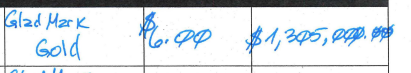 Glad Mark
Gold
$6.00
$1,305,000.00